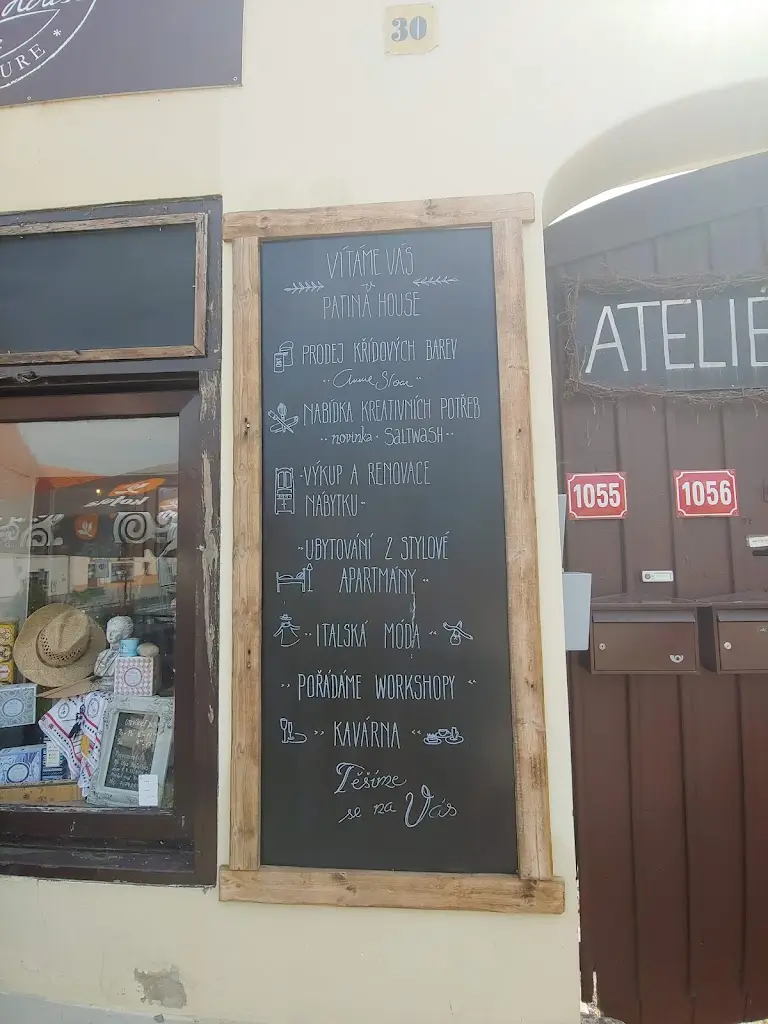 URE *
30
VÍTÁME VÁS
v
PATINA HOUSE
PRODEJ KŘÍDOVÝCH BAREV
Annie Sloan
NABÍDKA KREATIVNÍCH POTŘEB
novinka - SALTWASH
-VÝKUP A RENOVACE
NÁBYTKU-
UBYTOVÁNÍ 2 STYLOVÉ
APARTMÁNY
ITALSKÁ MÓDA
POŘÁDÁME WORKSHOPY
KAVÁRNA
Těšíme
se na Vás
ATELIÉ
1055
1056